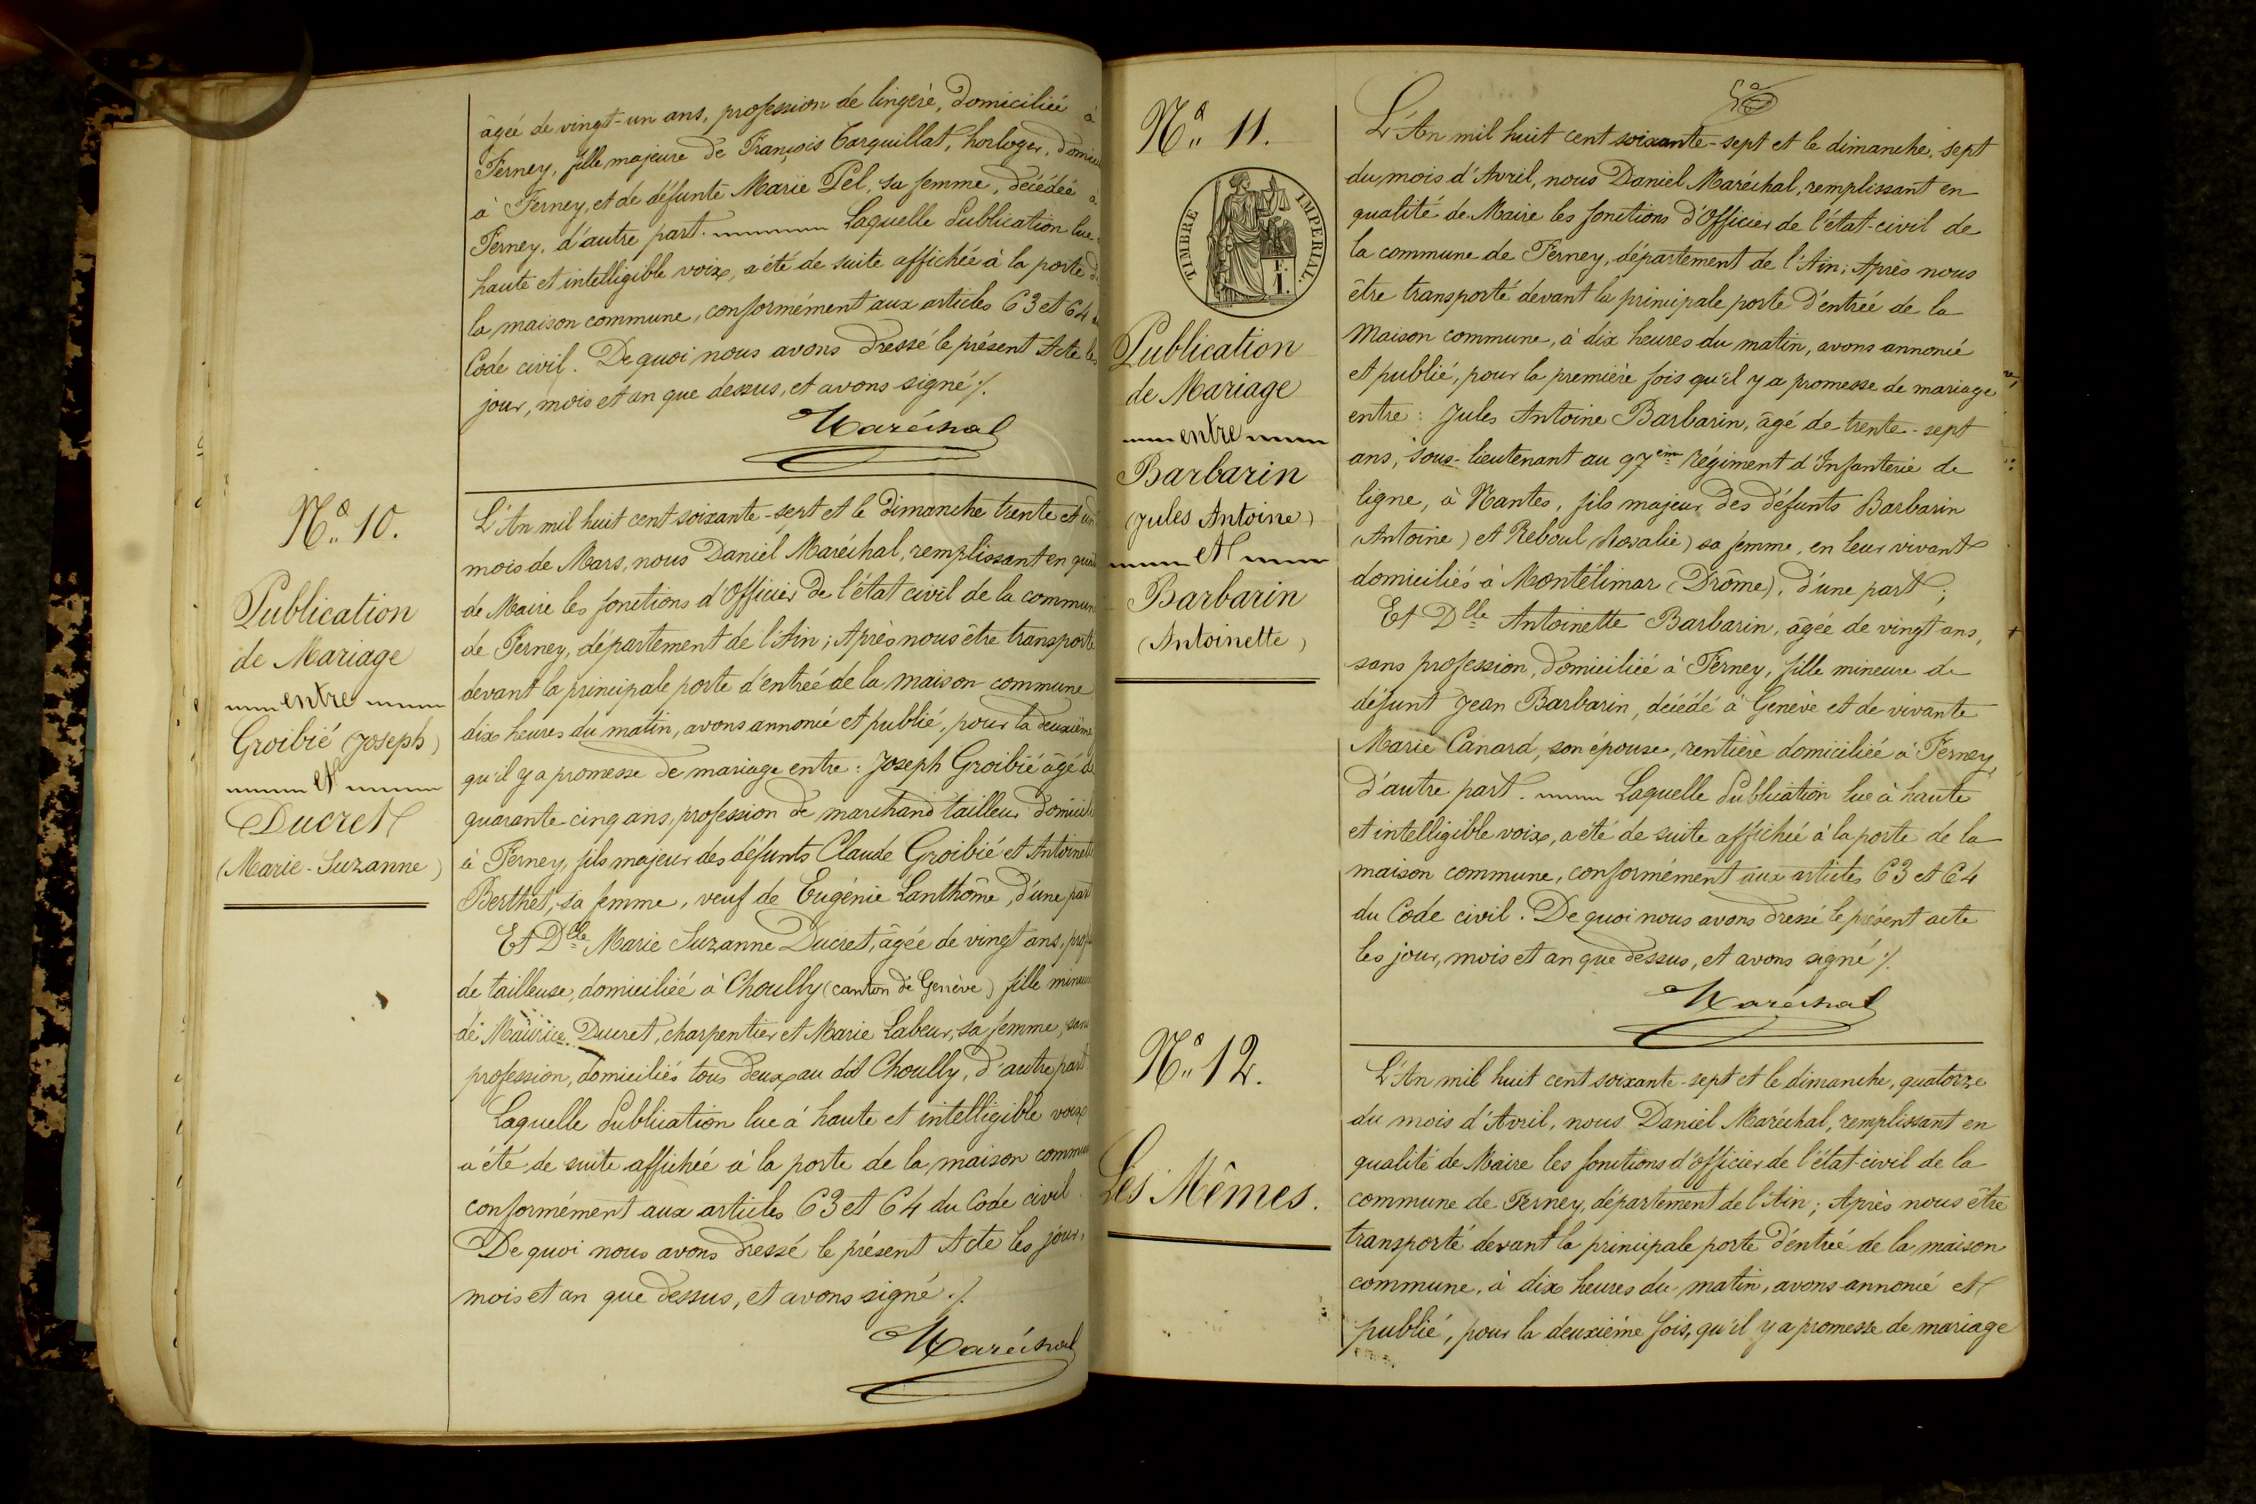 âgée de vingt-un ans, profession de lingère, domiciliée à
Ferney, fille majeure de François Tarquillat, horloger, domici
à Ferney, et de défunte Marie Pel, sa femme, décédée à
Ferney, d'autre part. Laquelle Publication lue
haute et intelligible voix, a été de suite affichée à la porte d
la maison commune, conformément aux articles 63 et 64
Code civil. De quoi nous avons dressé le présent Acte les
jour, mois et an que dessus, et avons signé ./.
Maréchal
No. 10.
Publication
de Mariage
entre
Groibié (Joseph)
et
Ducret
(Marie-Suzanne)
L'An mil huit cent soixante-sept et le dimanche trente et un
mois de Mars, nous Daniel Maréchal, remplissant en quali
de Maire les fonctions d'Officier de l'état civil de la commun
de Ferney, département de l'Ain; Après nous être transporté
devant la principale porte d'entrée de la maison commune
dix heures du matin, avons annoncé et publié, pour la deuxième
qu'il y a promesse de mariage entre: Joseph Groibié âgé de
quarante-cinq ans, profession de marchand tailleur domicili
à Ferney, fils majeur des défunts Claude Groibié et Antoinette
Berthet, sa femme, veuf de Eugénie Lanthôme, d'une part
Et Dlle Marie Suzanne Ducret, âgée de vingt ans, profe
de tailleuse, domiciliée à Choully (canton de Genève) fille mineure
de Maurice Ducret, charpentier et Marie Labeur, sa femme, sans
profession, domiciliés tous deux au dit Choully, d'autre part
Laquelle Publication lue à haute et intelligible voix
a été de suite affichée à la porte de la maison commun
conformément aux articles 63 et 64 du Code civil.
De quoi nous avons dressé le présent Acte les jour,
mois et an que dessus, et avons signé ./.
Maréchal
No. 11.
TIMBRE IMPERIAL.
Publication
de Mariage
entre
Barbarin
(Jules Antoine)
et
Barbarin
(Antoinette)
L'An mil huit cent soixante-sept et le dimanche, sept
du mois d'Avril, nous Daniel Maréchal, remplissant en
qualité de Maire les fonctions d'Officier de l'état-civil de
la commune de Ferney, département de l'Ain; Après nous
être transporté devant la principale porte d'entrée de la
Maison commune, à dix heures du matin, avons annoncé
et publié, pour la première fois qu'il y a promesse de mariage
entre: Jules Antoine Barbarin, âgé de trente-sept
ans, sous-lieutenant au 97em Régiment d'Infanterie de
ligne, à Nantes, fils majeur des défunts Barbarin
(Antoine) et Reboul (Rosalie) sa femme, en leur vivant
domiciliés à Montélimar (Drôme), d'une part;
Et Dlle Antoinette Barbarin, âgée de vingt ans,
sans profession, domiciliée à Ferney, fille mineure de
défunt Jean Barbarin, décédé à Genève et de vivante
Marie Canard, son épouse, rentière domiciliée à Ferney,
d'autre part. Laquelle Publication lue à haute
et intelligible voix, a été de suite affichée à la porte de la
maison commune, conformément aux articles 63 et 64
du Code civil. De quoi nous avons dressé le présent acte
les jour, mois et an que dessus, et avons signé ./.
Maréchal
No. 12.
Les Mêmes.
L'An mil huit cent soixante-sept et le dimanche, quatorze
du mois d'Avril, nous Daniel Maréchal, remplissant en
qualité de Maire les fonctions d'officier de l'état-civil de la
commune de Ferney, département de l'Ain; Après nous être
transporté devant la principale porte d'entrée de la maison
commune, à dix heures du matin, avons annoncé et
publié, pour la deuxième fois, qu'il y a promesse de mariage